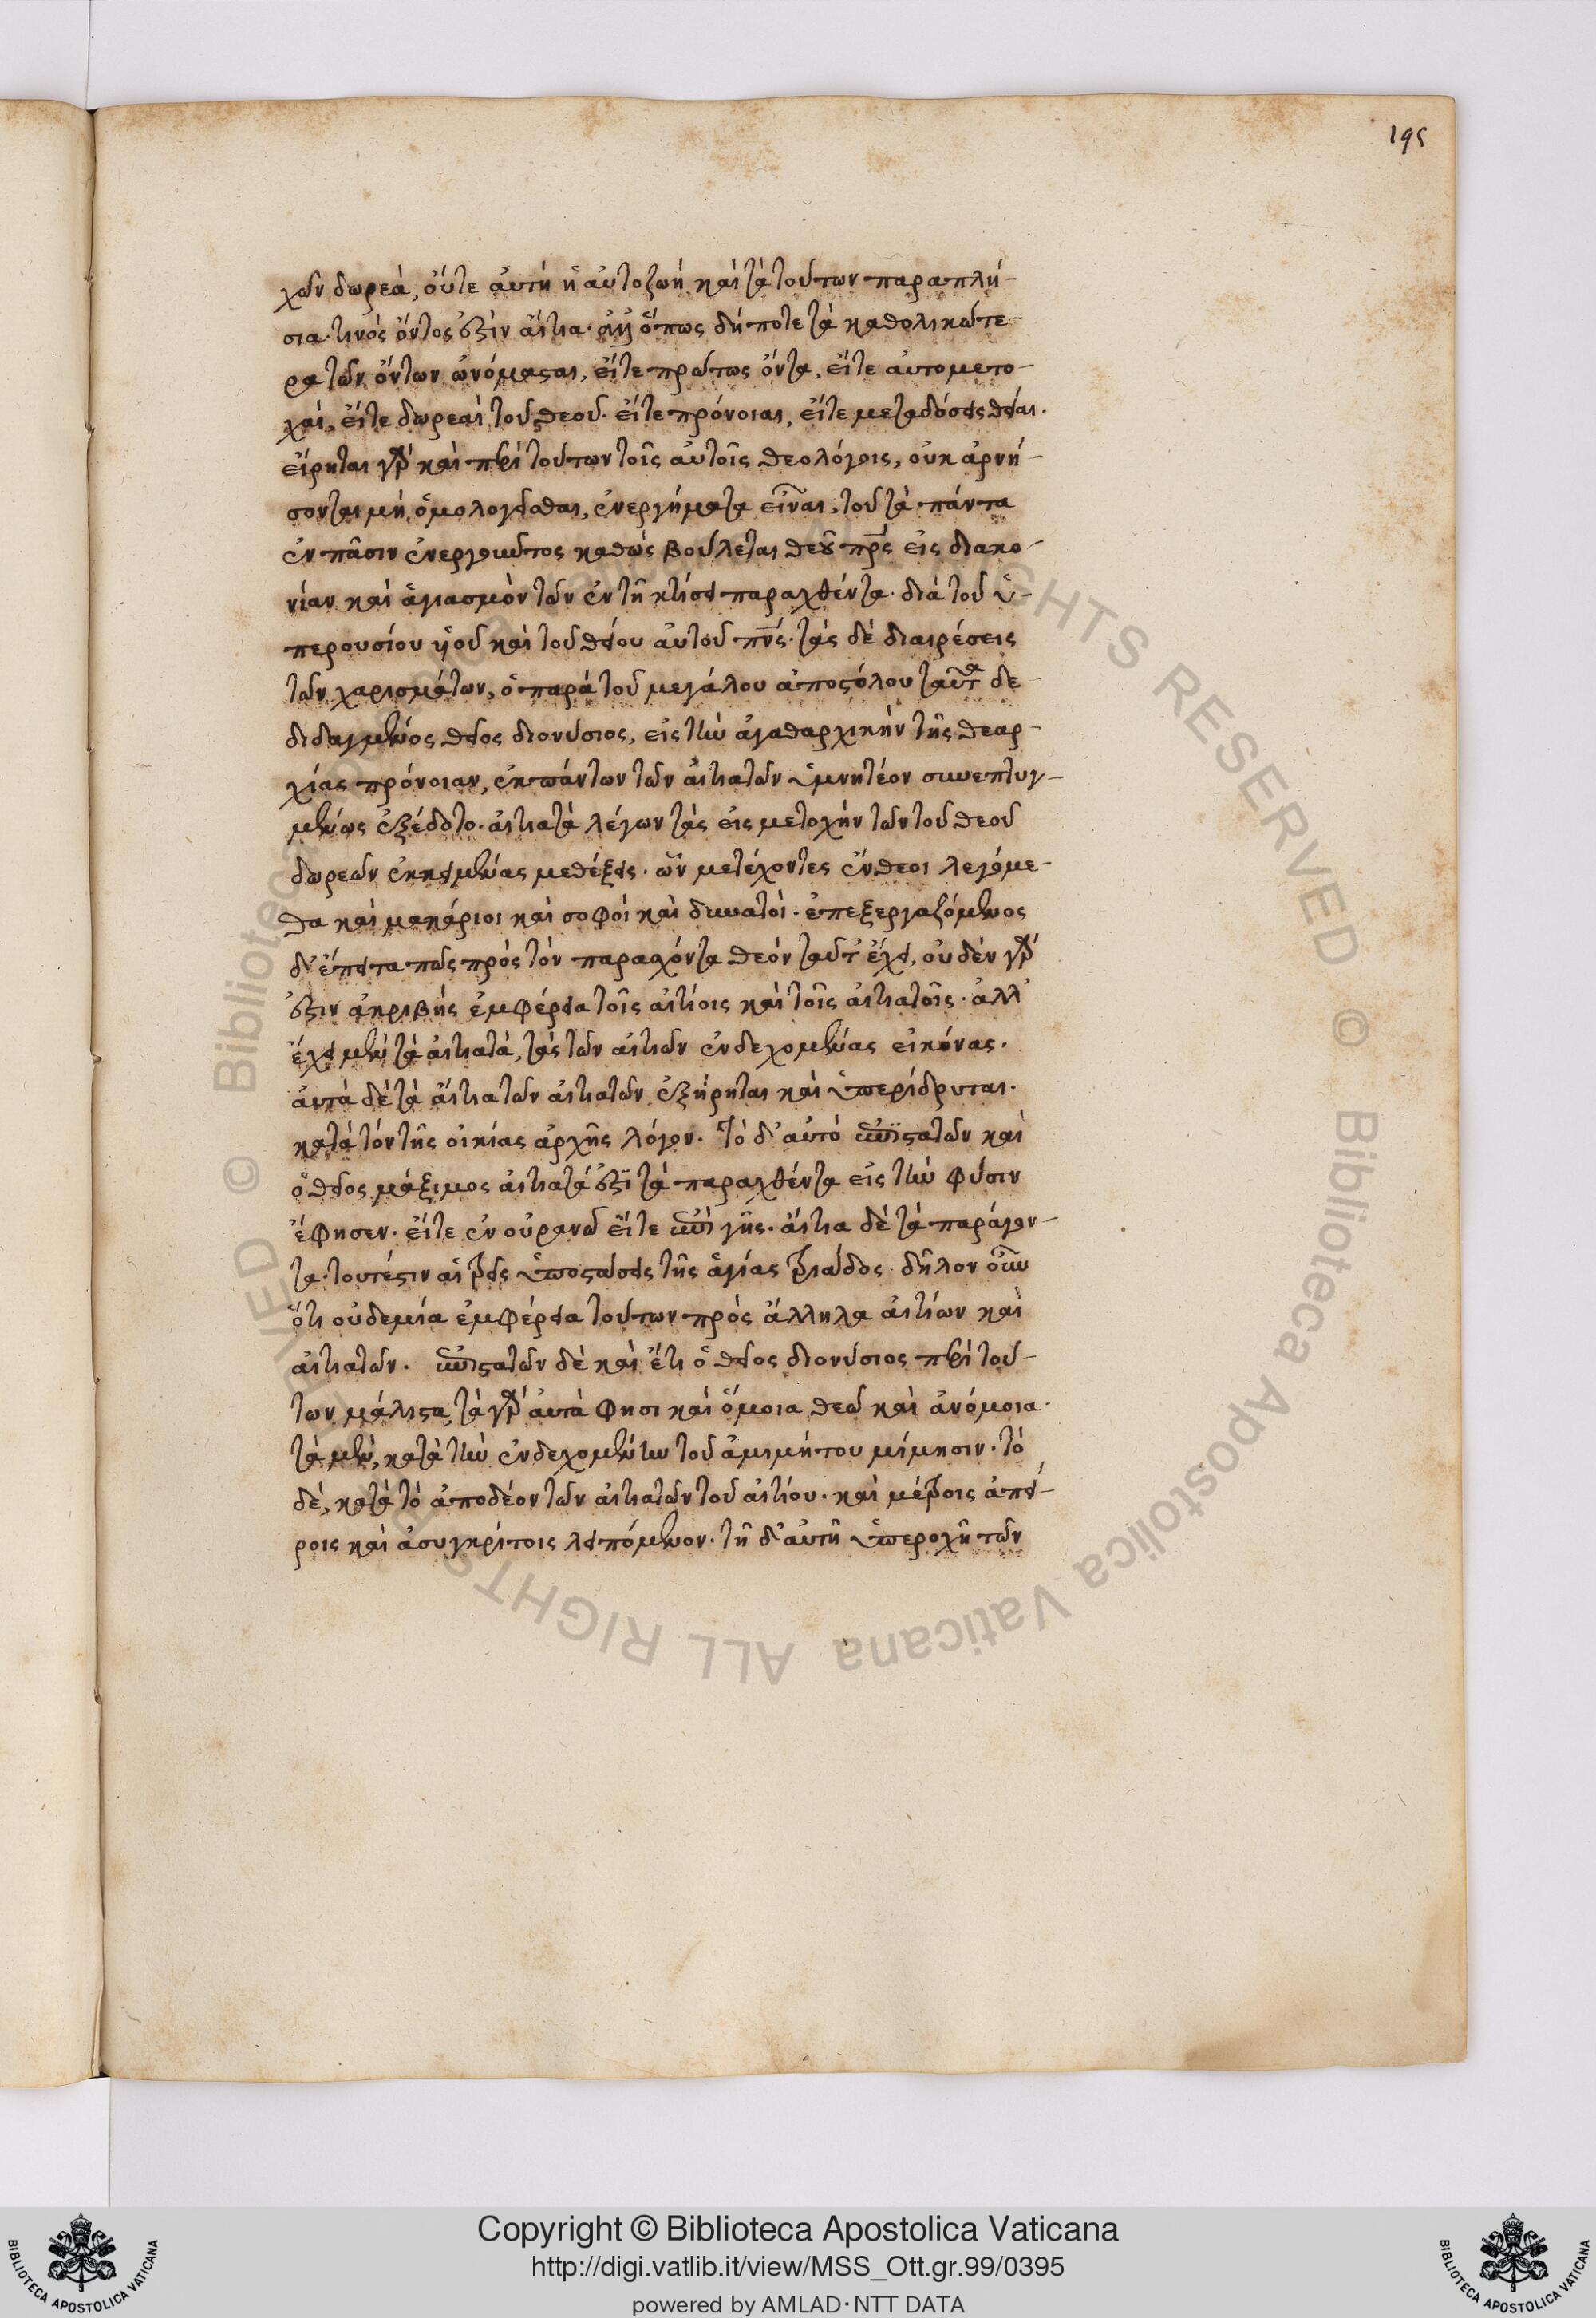 195
χῶν δωρεὰ, οὔτε αὐτὴ ἡ αὐτοζωὴ καὶ τὰ τούτων παραπλή-
σια. τινὸς ὄντος ἐστὶν αἴτια. ὅπως δήποτε τὰ καθολικώτε-
ρα τῶν ὄντων ὠνόμασται, εἴτε πρώτως ὄντα, εἴτε αὐτομετο-
χαὶ, εἴτε δωρεαὶ τοῦ θεοῦ. εἴτε πρόνοιαι, εἴτε μεταδόσεις θεῖαι.
εἴρηται γὰρ καὶ περὶ τούτων τοῖς αὐτοῖς θεολόγοις, οὐκ ἀρνή-
σονται μὴ ὁμολογεῖσθαι, ἐνεργήματα εἶναι, τοῦ τὰ πάντα
ἐν πᾶσιν ἐνεργοῦντος καθὼς βούλεται θεοῦ πρς εἰς διακο-
νίαν καὶ ἁγιασμὸν τῶν ἐν τῇ κτίσει παραχθέντα. διὰ τοῦ ὑ-
περουσίου υἱοῦ καὶ τοῦ θείου αὐτοῦ πνς. τὰς δὲ διαιρέσεις
τῶν χαρισμάτων, ὁ παρὰ τοῦ μεγάλου ἀποστόλου ταῦτα δε-
διδαγμένος θεῖος διονύσιος, εἰς τὴν ἀγαθαρχικὴν τῆς θεαρ-
χίας πρόνοιαν, ἐκ πάντων τῶν αἰτιατῶν ὑμνητέον συνεπτυγ-
μένως ἐξέδοτο. αἰτιατὰ λέγων τὰς εἰς μετοχὴν τῶν τοῦ θεοῦ
δωρεῶν ἐκκειμένας μεθέξεις. ὧν μετέχοντες ἔνθεοι λεγόμε-
θα καὶ μακάριοι καὶ σοφοὶ καὶ δυνατοὶ. ἐπεξεργαζόμενος
δ' ἔπειτα πῶς πρὸς τὸν παρασχόντα θεὸν ταῦτ' ἔχει, οὐδὲν γάρ
ἐστιν ἀκριβὴς ἐμφέρεια τοῖς αἰτίοις καὶ τοῖς αἰτιατοῖς. ἀλλ'
ἔχει μὲν τὰ αἰτιατὰ, τὰς τῶν αἰτίων ἐνδεχομένας εἰκόνας.
αὐτὰ δὲ τὰ αἴτια τῶν αἰτιατῶν ἐξῄρηται καὶ ὑπερίδρυται.
κατὰ τὸν τῆς οἰκίας ἀρχῆς λόγον. Τὸ δ' αὐτὸ ἐπιστατῶν καὶ
ὁ θεῖος μάξιμος αἰτιατά ἐστι τὰ παραχθέντα εἰς τὴν φύσιν
ἔφησεν. εἴτε ἐν οὐρανῷ εἴτε ἐπὶ γῆς. αἴτια δὲ τὰ παράγον-
τα. τουτέστιν αἱ τρεῖς ὑποστάσεις τῆς ἁγίας τριάδος. δῆλον οὖν
ὅτι οὐδεμία ἐμφέρεια τούτων πρὸς ἄλληλα αἰτίων καὶ
αἰτιατῶν. ἐπιστατῶν δὲ καὶ ἔτι ὁ θεῖος διονύσιος περὶ τού-
των μάλιστα, τὰ γὰρ αὐτὰ φησι καὶ ὅμοια θεῷ καὶ ἀνόμοια.
τὰ μὲν, κατὰ τὴν ἐνδεχομένην τοῦ ἀμιμήτου μίμησιν. τὸ
δὲ, κατὰ τὸ ἀποδέον τῶν αἰτιατῶν τοῦ αἰτίου. καὶ μέτροις ἀπεί-
ροις καὶ ἀσυγκρίτοις λειπόμενον. τῇ δ' αὐτῇ ὑπεροχῇ τῶν
Copyright © Biblioteca Apostolica Vaticana
http://digi.vatlib.it/view/MSS_Ott.gr.99/0395
powered by AMLAD·NTT DATA